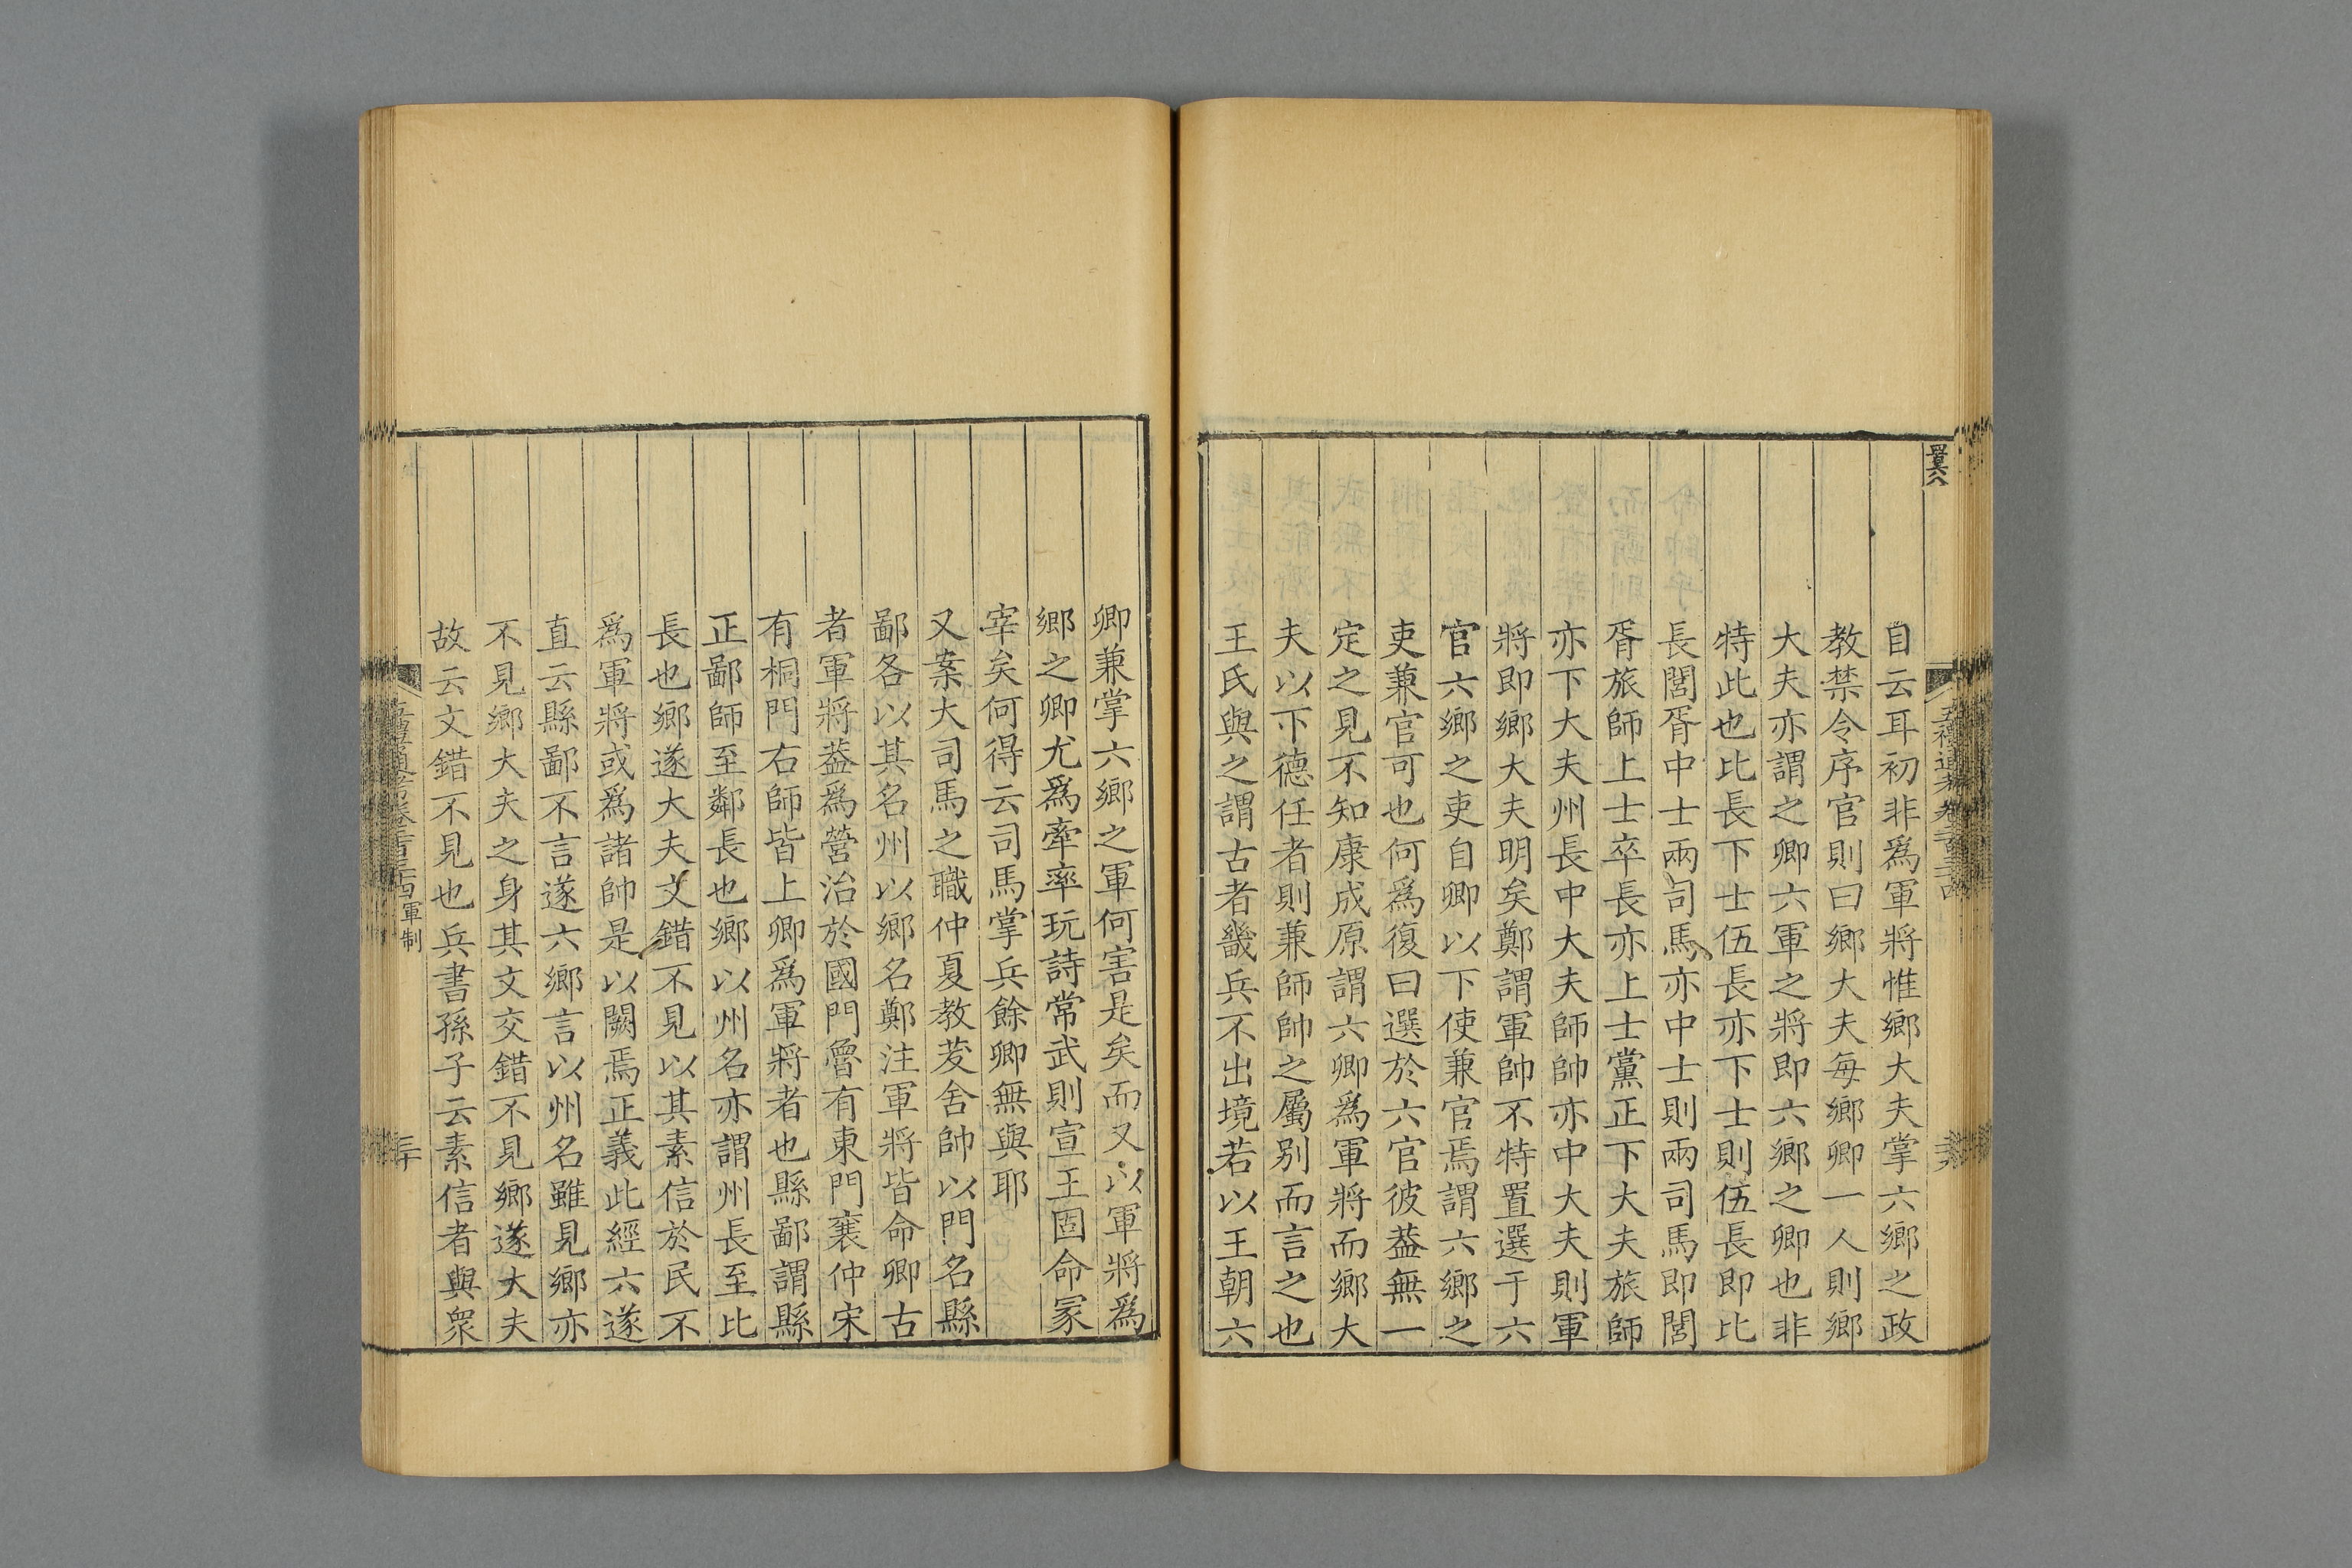 目云耳初非爲軍將惟鄉大夫掌六鄉之政
教禁令序官則曰鄉大夫每鄉卿一人則鄉
大夫亦謂之卿六軍之將即六鄉之卿也非
特此也比長下士伍長亦下士則伍長即比
長閭胥中士兩司馬亦中士則兩司馬即閭
胥旅師上士卒長亦上士黨正下大夫旅師
亦下大夫州長中大夫師帥亦中大夫則軍
將即鄉大夫明矣鄭謂軍帥不特置選于六
官六鄉之吏自卿以下使兼官焉謂六鄉之
吏兼官可也何爲復曰選於六官彼葢無一
定之見不知康成原謂六卿爲軍將而鄉大
夫以下德任者則兼師帥之屬别而言之也
王氏與之謂古者畿兵不出境若以王朝六
卿兼掌六鄉之軍何害是矣而又以軍將爲
鄉之卿尤爲牽率玩詩常武則宣王固命冢
宰矣何得云司馬掌兵餘卿無與耶
又案大司馬之職仲夏教茇舍帥以門名縣
鄙各以其名州以鄉名鄭注軍將皆命卿古
者軍將葢爲營治於國門魯有東門襄仲宋
有桐門右師皆上卿爲軍將者也縣鄙謂縣
正鄙師至鄰長也鄉以州名亦謂州長至比
長也鄉遂大夫文錯不見以其素信於民不
爲軍將或爲諸帥是以闕焉正義此經六遂
直云縣鄙不言遂六鄉言以州名雖見鄉亦
不見鄉大夫之身其文交錯不見鄉遂大夫
故云文錯不見也兵書孫子云素信者與衆
軍制
三十